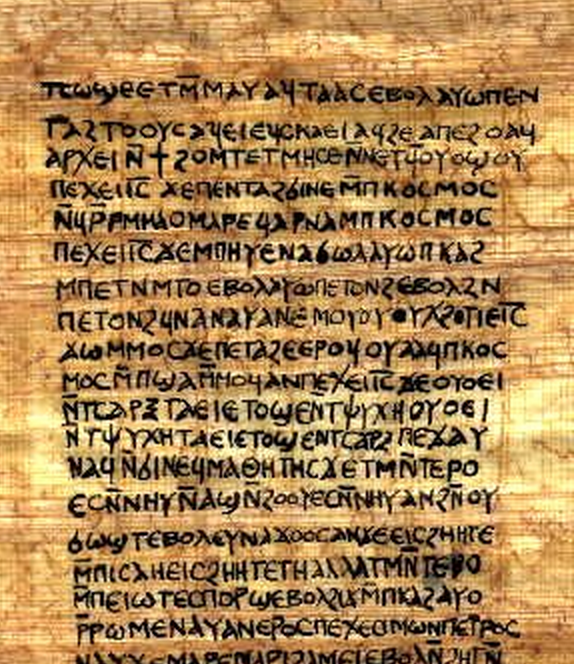 ⲧⲥⲱϣⲉⲉⲧⲙ̄ⲙⲁⲩⲁϥⲧⲁⲁⲥⲉⲃⲟⲗⲁⲩⲱⲡⲉⲛ
ⲧⲁϩⲧⲟⲟⲩⲥⲁϥⲉⲓⲉϥⲥⲕⲁⲉⲓⲁϥϩⲉⲁⲡⲉϩⲟⲁϥ
ⲁⲣⲭⲉⲓⲛ̄ϯϩⲟⲙⲧⲉⲧⲙⲏⲥⲉⲛ̄ⲛⲉⲧϥⲟⲩⲟϣⲟⲩ
ⲡⲉϫⲉⲓ̅ⲥ̅ϫⲉⲡⲉⲛⲧⲁϩϭⲓⲛⲉⲙ̄ⲡⲕⲟⲥⲙⲟⲥ
ⲛ̄ϥⲣ̄ⲣⲙⲙⲁⲟⲙⲁⲣⲉϥⲁⲣⲛⲁⲙⲡⲕⲟⲥⲙⲟⲥ
ⲡⲉϫⲉⲓ̅ⲥ̅ϫⲉⲙⲡⲏⲩⲉⲛⲁϭⲱⲗⲁⲩⲱⲡⲕⲁϩ
ⲙⲡⲉⲧⲛⲙⲧⲟⲉⲃⲟⲗⲁⲩⲱⲡⲉⲧⲟⲛϩⲉⲃⲟⲗϩⲛ
ⲡⲉⲧⲟⲛϩϥⲛⲁⲛⲁⲩⲁⲛⲉⲙⲟⲩ
ϫⲱⲙⲙⲟⲥϫⲉⲡⲉⲧⲁϩⲉⲉⲣⲟϥⲟⲩⲁⲁϥⲡⲕⲟⲥ
ⲙⲟⲥⲙ̄ⲡϣⲁⲙ̄ⲙⲟϥⲁⲛⲡⲉϫⲉⲓ̅ⲥ̅ϫⲉⲟⲩⲟⲉⲓ
ⲛ̄ⲧⲥⲁⲣⲝⲧⲁⲉⲓⲉⲧⲟϣⲉⲛ̄ⲧⲯⲩⲭⲏⲟⲩⲟⲉⲓ
ⲛ̄ⲧⲯⲩⲭⲏⲧⲁⲉⲓⲉⲧⲟϣⲉⲛⲧⲥⲁⲣⲝⲡⲉϫⲁⲩ
ⲛⲁϥⲛ̄ϭⲓⲛⲉϥⲙⲁⲑⲏⲧⲏⲥϫⲉⲧⲙⲛ̄ⲧⲉⲣⲟ
ⲉⲥⲛ̄ⲛⲏⲩⲛ̄ⲁϣⲛ̄ϩⲟⲟⲩⲉⲥⲛ̄ⲛⲏⲩⲁⲛϩⲛ̄ⲟⲩ
ϭⲱϣⲧⲉⲃⲟⲗⲉⲩⲛⲁϫⲟⲟⲥⲁⲛϫⲉⲉⲓⲥϩⲏⲏⲧⲉ
ⲙ̄ⲡⲓⲥⲁⲏⲉⲓⲥϩⲏⲏⲧⲉⲧⲏⲁⲗⲗⲁⲧⲙⲛ̄ⲧⲉⲣⲟ
ⲙ̄ⲡⲉⲓⲱⲧⲉⲥⲡⲟⲣϣⲉⲃⲟⲗϩⲓϫⲙ̄ⲡⲕⲁϩⲁⲩⲱ
ⲣ̄ⲣⲱⲙⲉⲛⲁⲩⲁⲛⲉⲣⲟⲥⲡⲉϫⲉⲥⲓⲙⲱⲛⲡⲉⲧⲣⲟⲥ